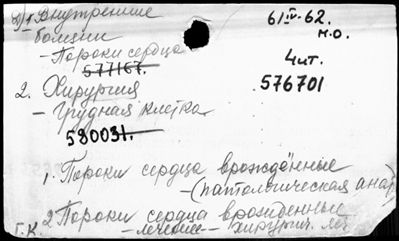 1. Внутренние
болезни
- Пороки сердца
577167.
2. Хирургия
- Грудная клетка
580031.
6/IV-62.
н.о.
4 ит.
576701
1. Пороки сердца врождённые
- (патологическая анат
2 Пороки сердца врожденные
- лечение - хирургич.
Г.К.